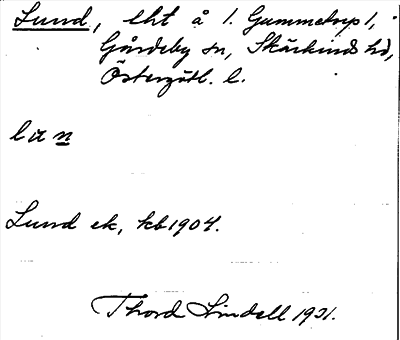 Lund, lht å 1. Gummetorp 1,
Gårdeby sn, Skärkinds hd,
Östergötl. l.
lun
Lund ek, kb 1904.
Thord Lindell 1931.